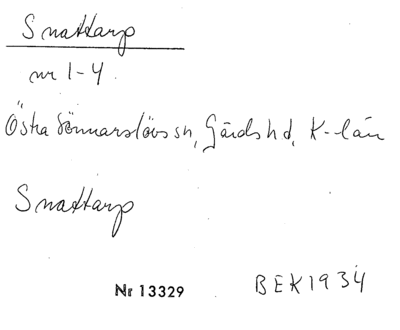 Snattarp
nr 1-4.
Östra Sönnarslövs sn, Gärds hd, K-län
Snattarp
Nr 13329
BEK1934